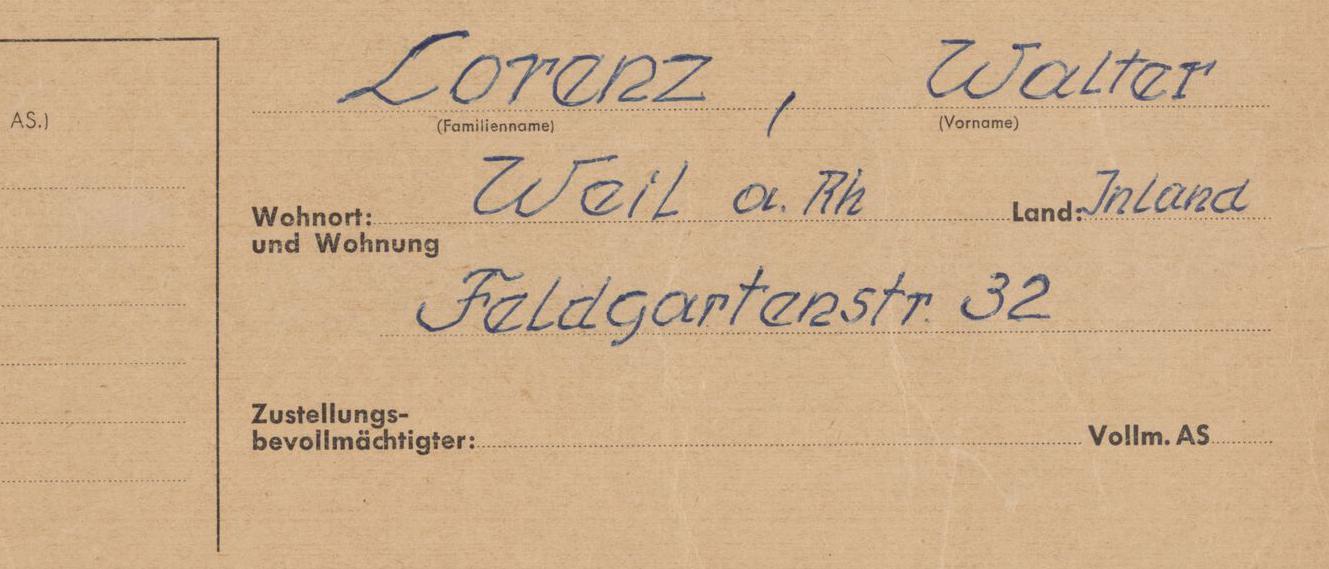 AS.)
Lorenz, Walter
(Familienname) (Vorname)
Wohnort: Weil a. Rh Land: Inland
und Wohnung
Feldgartenstr. 32
Zustellungs-
bevollmächtigter: Vollm. AS